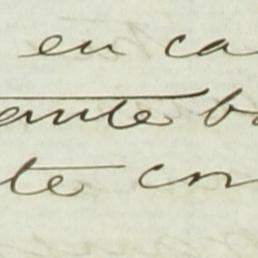 en ca
ante ba
te con